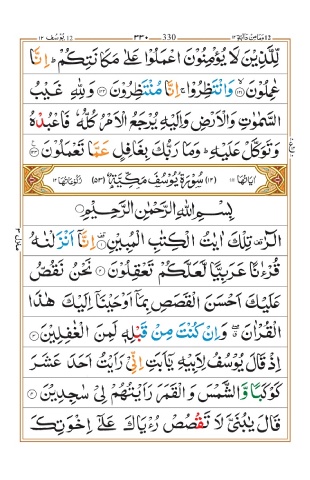 يُوسُف ١٢ 12 ٣٣٠ 330 وَمَا مِنْ دَآبَّةٍ ١٢ 12
لِّلَّذِيْنَ لَا يُؤْمِنُوْنَ اعْمَلُوْا عَلٰى مَكَانَتِكُمْ ؕ اِنَّا
عٰمِلُوْنَ ۙ‏ ﴿۱۲۱﴾ وَانْتَظِرُوْا ۚ اِنَّا مُنْتَظِرُوْنَ ﴿۱۲۲﴾ وَلِلّٰهِ غَيْبُ
السَّمٰوٰتِ وَالْاَرْضِ وَاِلَيْهِ يُرْجَعُ الْاَمْرُ كُلُّهٗ فَاعْبُدْهُ
وَتَوَكَّلْ عَلَيْهِ ؕ وَمَا رَبُّكَ بِغَافِلٍ عَمَّا تَعْمَلُوْنَ ﴿۱۲۳﴾
اٰيَاتُهَا ۱۱۱ (۱۲) سُوْرَةُ يُوْسُفَ مَكِّيَّةٌ (۵۳) رُكُوْعَاتُهَا ۱۲
بِسْمِ اللّٰهِ الرَّحْمٰنِ الرَّحِيْمِ
الٓرٰ ۚ تِلْكَ اٰيٰتُ الْكِتٰبِ الْمُبِيْنِ ﴿۱﴾ اِنَّاۤ اَنْزَلْنٰهُ
قُرْءٰنًا عَرَبِيًّا لَّعَلَّكُمْ تَعْقِلُوْنَ ﴿۲﴾ نَحْنُ نَقُصُّ
عَلَيْكَ اَحْسَنَ الْقَصَصِ بِمَاۤ اَوْحَيْنَاۤ اِلَيْكَ هٰذَا
الْقُرْاٰنَ ۖ وَاِنْ كُنْتَ مِنْ قَبْلِهٖ لَمِنَ الْغٰفِلِيْنَ ﴿۳﴾
اِذْ قَالَ يُوْسُفُ لِاَبِيْهِ يٰۤاَبَتِ اِنِّيْ رَاَيْتُ اَحَدَ عَشَرَ
كَوْكَبًا وَّالشَّمْسَ وَالْقَمَرَ رَاَيْتُهُمْ لِيْ سٰجِدِيْنَ ﴿۴﴾
قَالَ يٰبُنَيَّ لَا تَقْصُصْ رُءْيَاكَ عَلٰۤى اِخْوَتِكَ